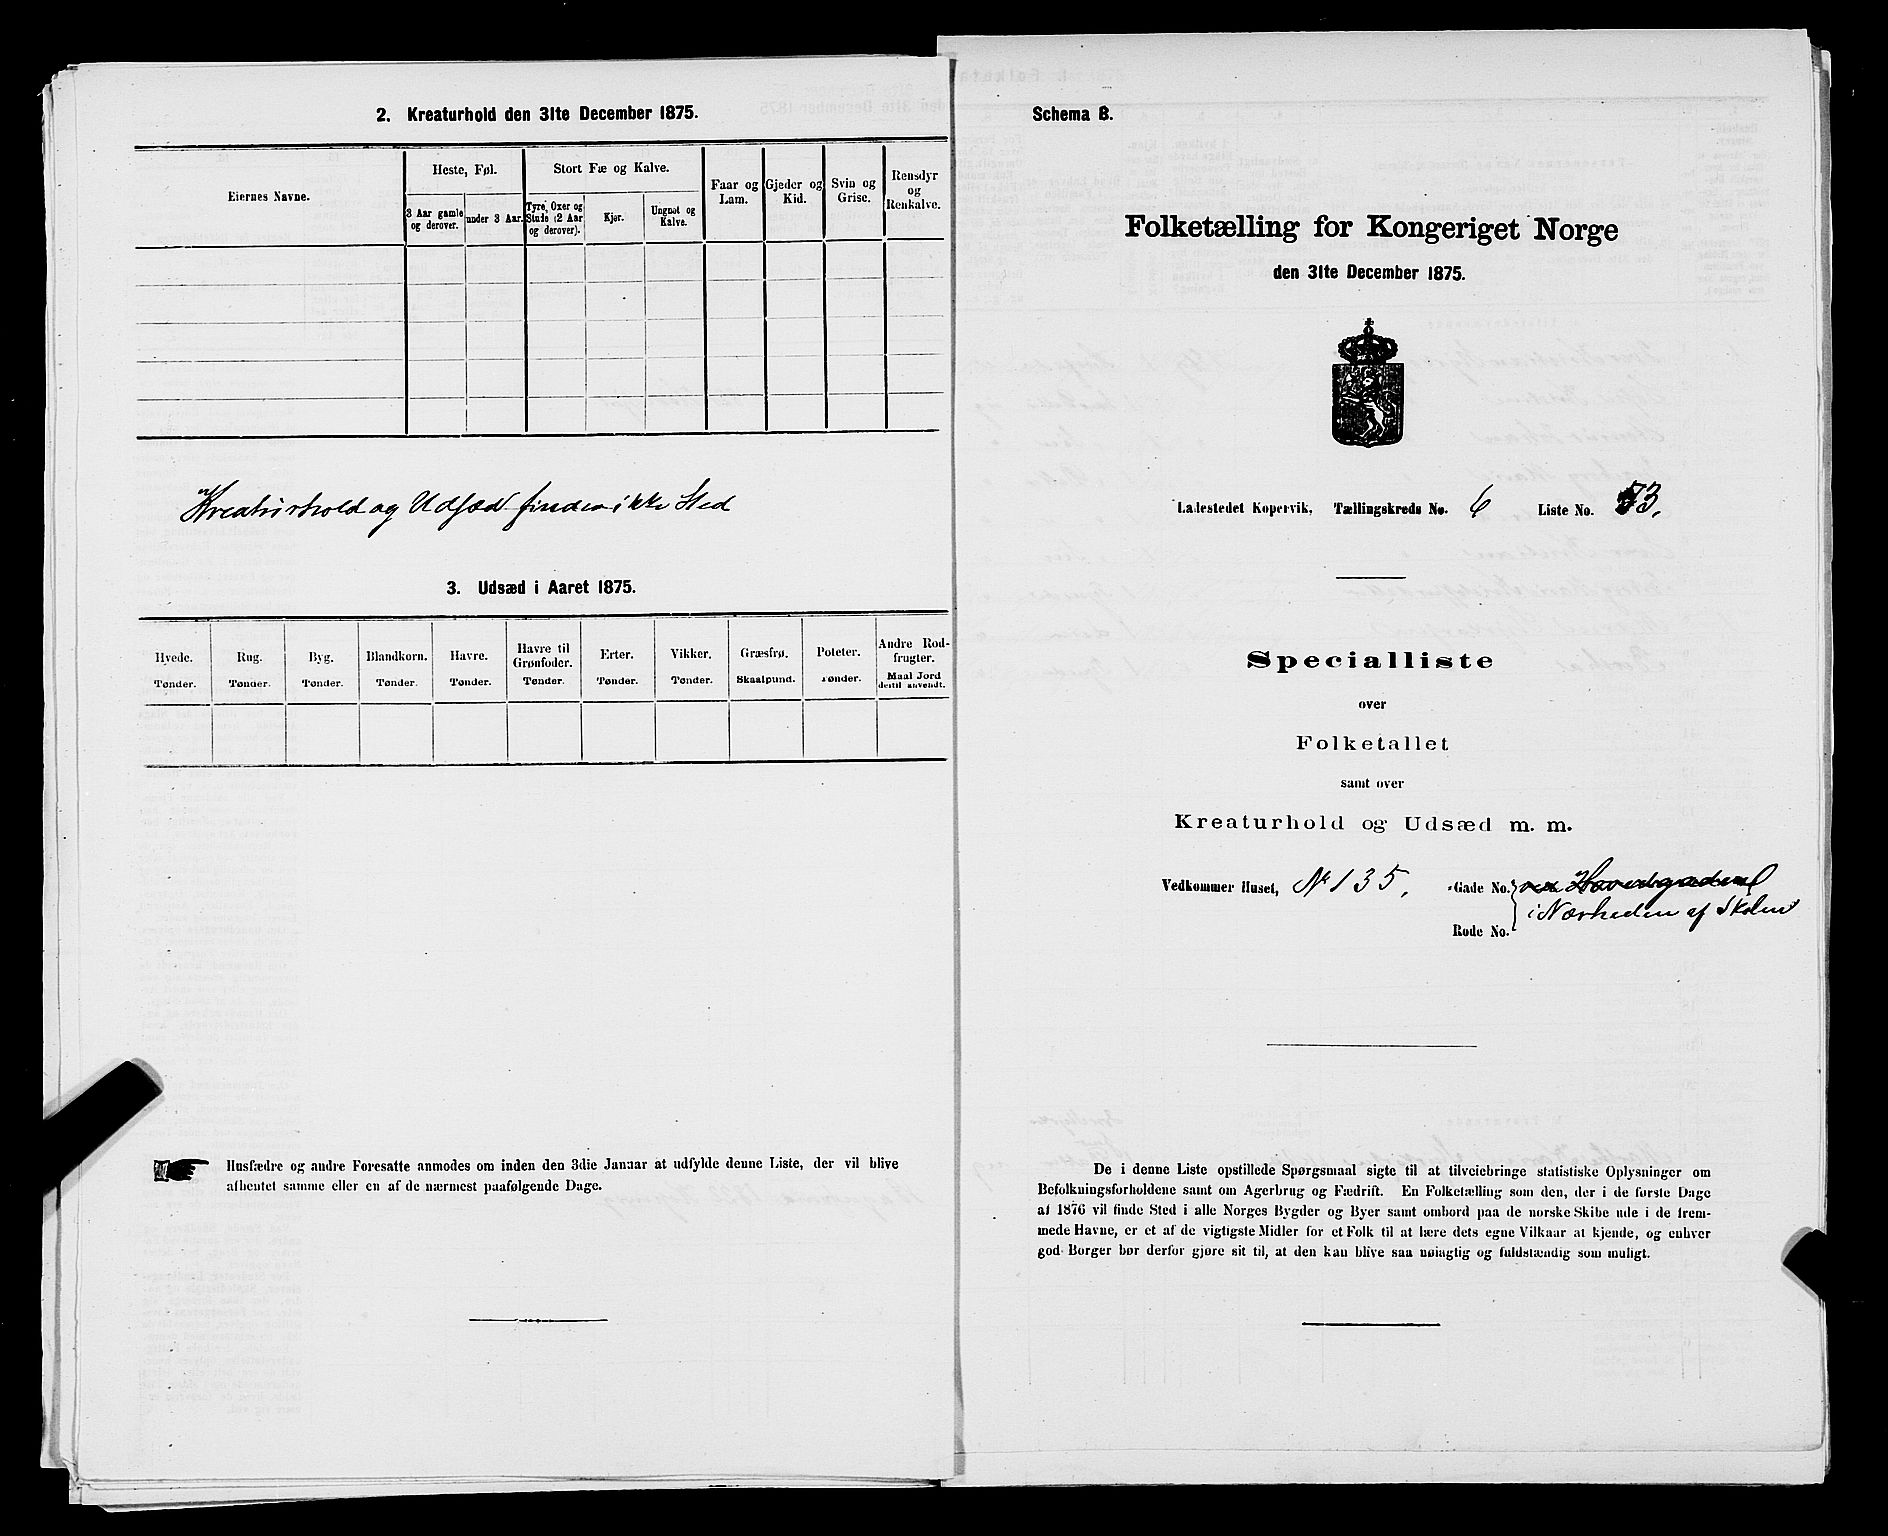 2. Kreaturhold den 31te December 1875.
Eiernes Navne.
Heste, Føl.
3 Aar gamle og derover.
under 3 Aar.
Stort Fæ og Kalve.
Tyre, Oxer og Stude (2 Aar og derover).
Kjør.
Ungnøt og Kalve.
Faar og Lam.
Gjeder og Kid.
Svin og Grise.
Rensdyr og Renkalve.
Kreaturhold og Udsæd finder ikke Sted
3. Udsæd i Aaret 1875.
Hvede. Tønder.
Rug. Tønder.
Byg. Tønder.
Blandkorn. Tønder.
Havre. Tønder.
Havre til Grønfoder. Tønder.
Erter. Tønder.
Vikker. Tønder.
Græsfrø. Skaalpund.
Poteter. Tønder.
Andre Rodfrugter. Maal Jord dertil anvendt.
Husfædre og andre Foresatte anmodes om inden den 3die Januar at udfylde denne Liste, der vil blive
afhentet samme eller en af de nærmest paafølgende Dage.
Schema B.
Folketælling for Kongeriget Norge
den 31te December 1875.
Ladestedet Kopervik, Tællingskreds No. 6 Liste No. 53.
Specialliste
over
Folketallet
samt over
Kreaturhold og Udsæd m. m.
Vedkommer Huset, No 135, Gade No. ved Hovedgaden
i Nærheden af Skolen
Rode No.
De i denne Liste opstillede Spørgsmaal sigte til at tilveiebringe statistiske Oplysninger om
Befolkningsforholdene samt om Agerbrug og Fædrift. En Folketælling som den, der i de første Dage
af 1876 vil finde Sted i alle Norges Bygder og Byer samt ombord paa de norske Skibe ude i de frem-
mede Havne, er et af de vigtigste Midler for et Folk til at lære dets egne Vilkaar at kjende, og enhver
god Borger bør derfor gjøre sit til, at den kan blive saa nøiagtig og fuldstændig som muligt.